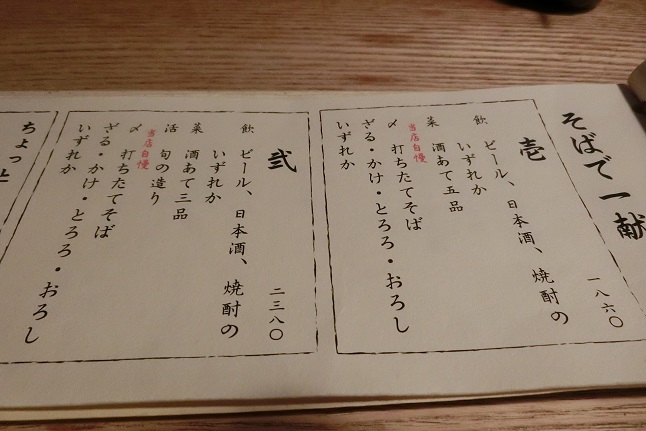 そばで一献
壱
一八六〇
飲 ビール、日本酒、焼酎の
いずれか
菜 酒あて五品
当店自慢
〆 打ちたてそば
ざる・かけ・とろろ・おろし
いずれか
弐
二三八〇
飲 ビール、日本酒、焼酎の
いずれか
菜 酒あて三品
活 旬の造り
当店自慢
〆 打ちたてそば
ざる・かけ・とろろ・おろし
いずれか
ちょっと